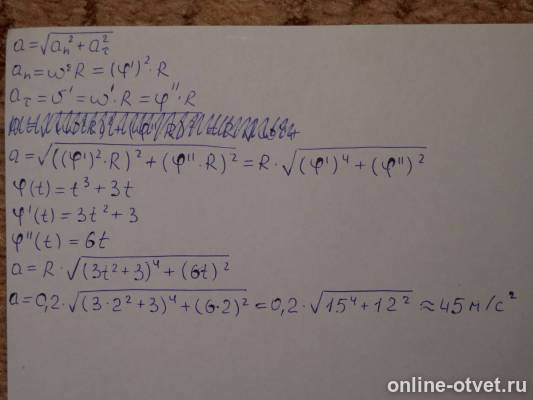 a = √(aₙ² + a_τ²)
aₙ = ω²R = (φ')²·R
a_τ = v' = ω'·R = φ''·R
a = √(((φ')²·R)² + (φ''·R)²) = R·√((φ')⁴ + (φ'')²)
φ(t) = t³ + 3t
φ'(t) = 3t² + 3
φ''(t) = 6t
a = R·√((3t² + 3)⁴ + (6t)²)
a = 0,2·√((3·2² + 3)⁴ + (6·2)²) = 0,2·√(15⁴ + 12²) ≈ 45 м/с²
online-otvet.ru